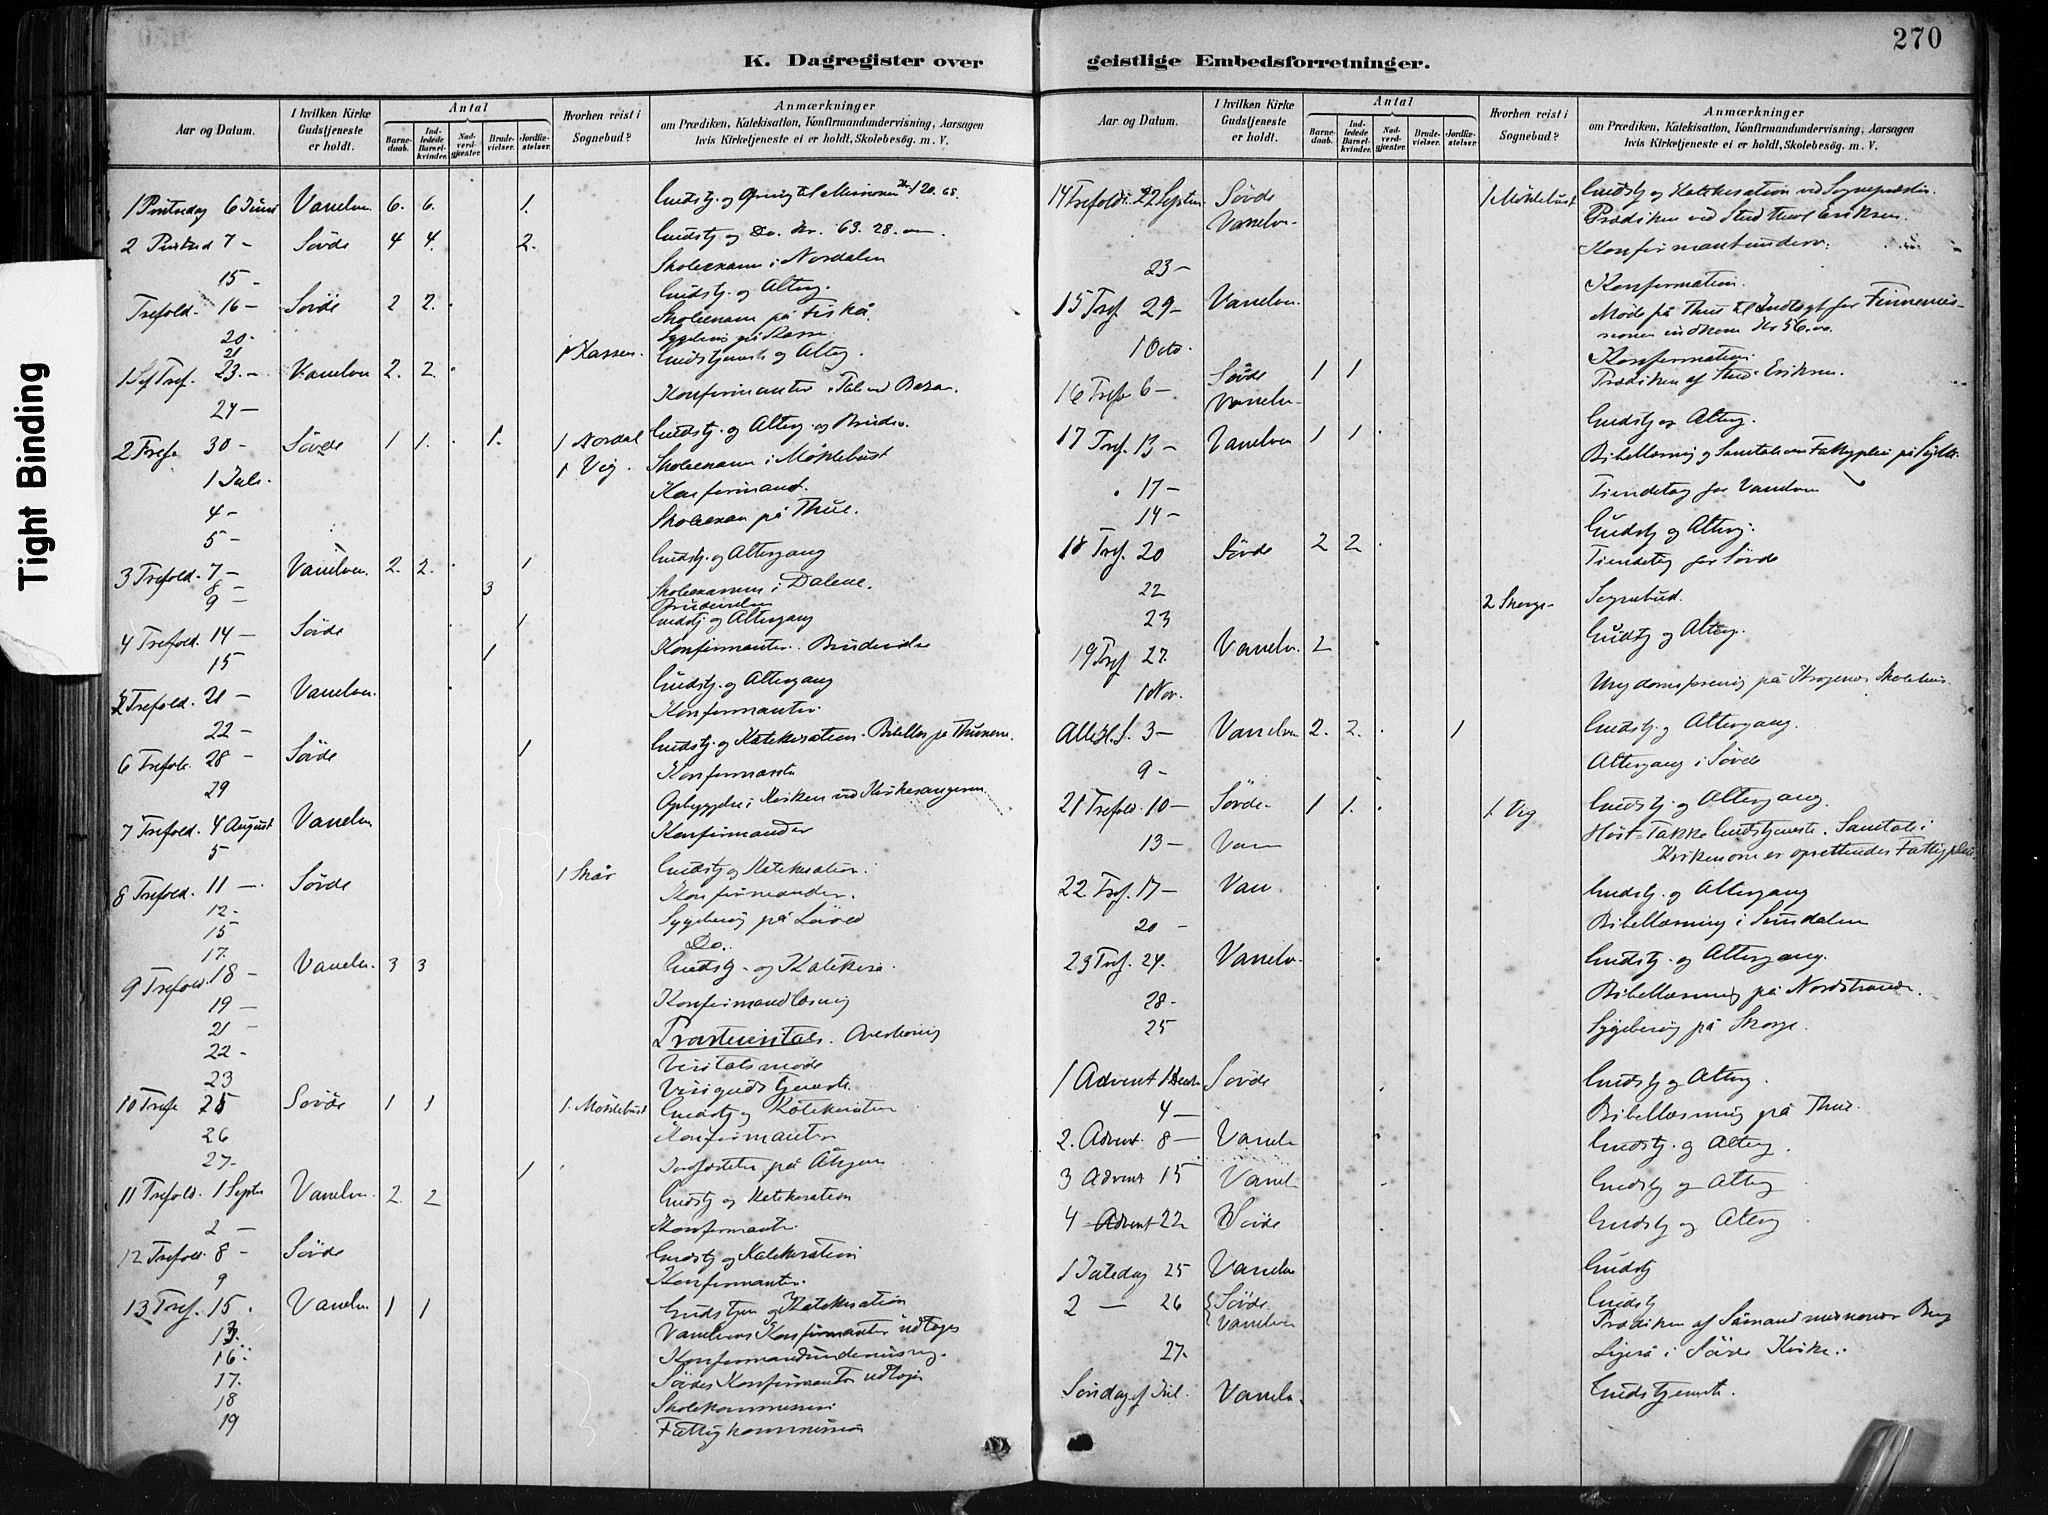 270
K. Dagregister over
geistlige Embedsforretninger.
Tight Binding
Aar og Datum.
I hvilken Kirke Gudstjeneste er holdt.
Antal
Barnedaab.
Indledede Barselkvinder.
Nadverdgjæster.
Brudevielser.
Jordfæstelser.
Hvorhen reist i Sognebud?
Anmærkninger
om Prædiken, Katekisation, Konfirmandundervisning, Aarsagen
hvis Kirketjeneste ei er holdt, Skolebesøg. m. V.
6 Juni Vanelven 6. 6. 1. Gudstj. og
7 – Søvde 4 4. 2. Gudstj. og Do. Kr. 63. 28.
15 – Skoleexam i Nordalen
Trefold. 16 – Søvde 2 2. Gudstj. og Alterg.
20 – Skoleexam på Fiskå
21
23. – Vanelven 2. 2. Gudstjeneste og Alterg.
24 – Konfirmanter
2 Trefo 30 – Søvde 1 1. 1. 1 Nordal Gudstj. og Alterg. og Brudev.
1 Juli. 1 Vig Skoleexam i Møklebust
4 – Konfirmand.
5 – Skoleexam på Thue.
3 Trefold. 7 – Vanelven. 2. 2. 1 Gudstj. og Altergang
8 – 3 Skoleexamen i Dalene.
9 – Brudevielse
4 Trefold. 14 – Søvde 1 Gudstj og Altergang
15 1 Konfirmanter. Brudevielse
Trefold. 21 – Vanelven. Gudstj. og Altergang
22 – Konfirmanter
6 Trefold. 28 – Søvde 1 Gudstj. og Katekisation.
29 Konfirmanter
7 Trefold. 4 August Vanelven Opbyggelse i Kirken ved Kirkesangeren
5 Konfirmander
8 Trefold. 11 – Søvde 1 Skår Gudstj og Katekisation.
12 – Konfirmander.
15 Sygebesøg på
17. Do.
9 Trefold. 18 – Vanelv. 3 3 Gudstj. og Katekisa.
19 – Konfirmandlæsning
21 – Provstevisitats.
22 – Visitatsmøde
23
10 Trefo 25 Søvde 1 1 1. Møklebust Gudstj og Katekisation
26 Konfirmanter
27. 1 Jordfæstelse på
11 Trefold. 1 Septbr Vanelven. 2 2 Gudstj og Katekisation
2 – Konfirmanter
12 Trefold. 8 – Søvde Gudstj og Katekisation
9 Konfirmanter.
13 Tref. 15. Vanelv. 1 1 Gudstjen og Katekisation
13. Vanelvens Konfirmanter udtoges
16. Konfirmandundervisng.
17. Søvdes Konfirmanter udtoges
18 Skolekommission
19 Fattigkommission
Aar og Datum.
I hvilken Kirke Gudstjeneste er holdt.
Antal
Barnedaab.
Indledede Barselkvinder.
Nadverdgjæster.
Brudevielser.
Jordfæstelser.
Hvorhen reist i Sognebud?
Anmærkninger
om Prædiken, Katekisation, Konfirmandundervisning, Aarsagen
hvis Kirketjeneste ei er holdt, Skolebesøg. m. V.
14 Trefold. 22 Septbr. Søvde 1 Møklebust Gudstj og Katekisation ved Sognepræsten.
Vanelv. Prædiken ved Stud theol Eriksen.
23 – Konfirmantunderv.
15 Tref. 29 – Vanelven. Konfirmation.
1 Octo. Møde på Thue til Indtægt for Finnemis-
sionen indkom Kr 56.
16 Tref 6 – Søvde 1 1 Konfirmation.
Vanelv. Prædiken af Stud. Eriksen.
17 Tref. 13 – Vanelven 1 1 Gudstj og Alterg.
17 – Bibellæsning og Samtale om Fattigpleie på
14 – Tiendetag for Vanelven
18 Tref. 20 Søvde 2 2 Gudstj og Alterg.
22 Tiendetag for Søvde
23 2 Skorge – Sognebud.
19 Tref. 27. Vanelv. 2 Gudstj og Alterg.
1 Nov. Ungdomsforening på
Alle H. S. 3 – Vanelven 2. 2. 1 Gudstj. og Altergang.
9 – Altergang i Søvde
21 Trefold. 10 – Søvde – 1 1. 1. Vig Gudstj. og Altergang.
13 – Van Høst-Takke Gudstjeneste. Samtale i
Kirken om
22 Tref. 17 – Van Gudstj. og Altergang
20 – Bibellæsning i Sundalen
23 Tref. 24. Vanelv. Gudstj. og Altergang.
28 – Bibellæsning på Nordstrand.
25 Sygebesøg på Skorge.
1 Advent 1 Decbr Søvde Gudstj og Alterg.
4 – Bibellæsning på Thue.
2. Advent. 8 – Vanelv Gudstj. og Alterg.
3 Advent 15 Vanel Gudstj og Alterg
4 Advent 22 Søvde Gudstj og Alterg
1 Juledag 25 Vanelv Gudstj
2 – 26 Søvde Gudstj
Vanelven Prædiken af Sømandsmissionær Berg
27. Ligesaa i Søvde Kirke.
Søndag ef Jul. Vanelv. Gudstjeneste.